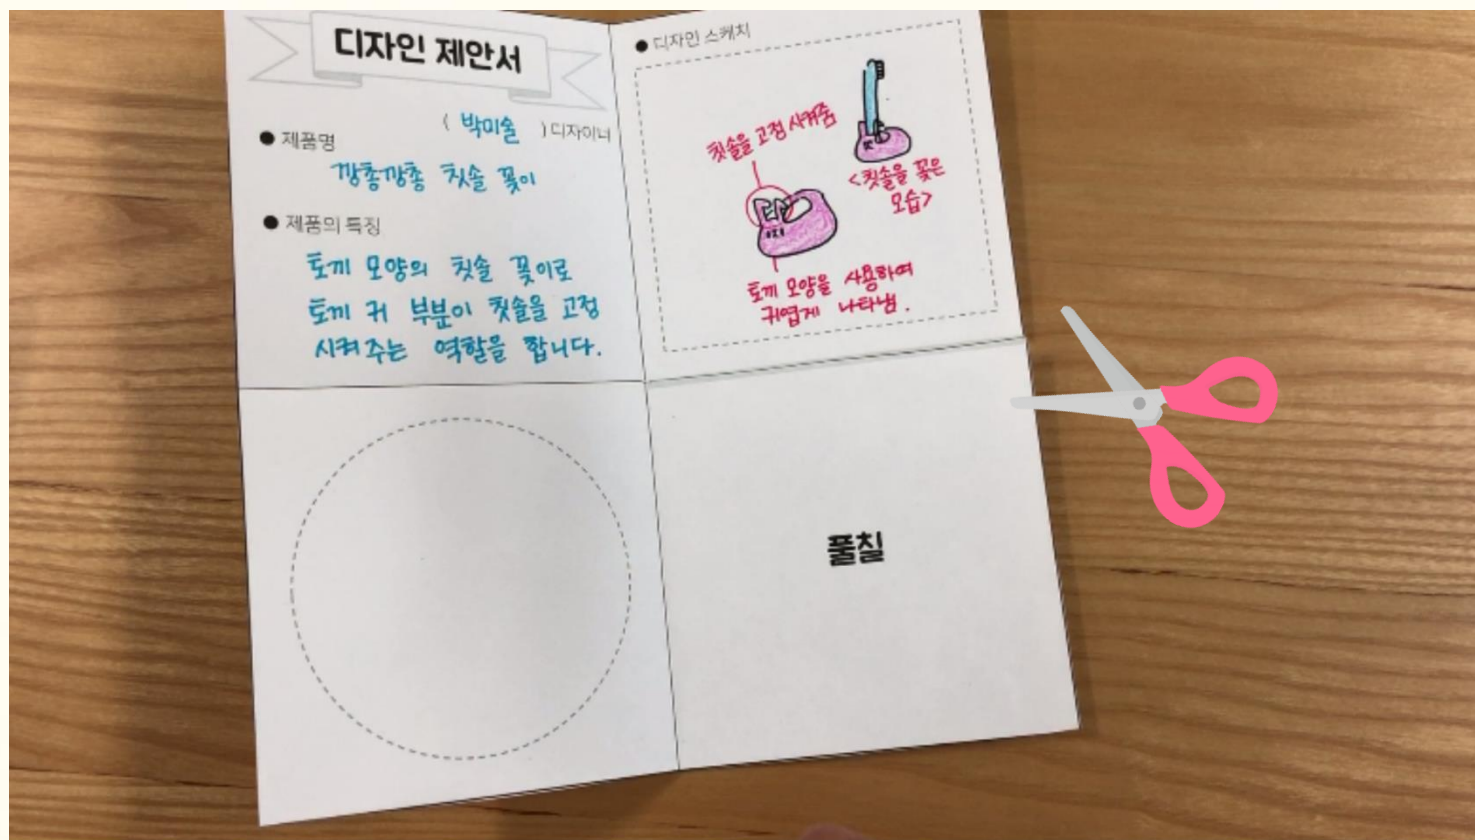 디자인 제안서
( 박미술 ) 디자이너
● 제품명
깡총깡총 칫솔 꽂이
● 제품의 특징
토끼 모양의 칫솔 꽂이로
토끼 귀 부분이 칫솔을 고정
시켜주는 역할을 합니다.
● 디자인 스케치
칫솔을 고정 시켜줌
<칫솔을 꽂은
모습>
토끼 모양을 사용하여
귀엽게 나타냄.
풀칠